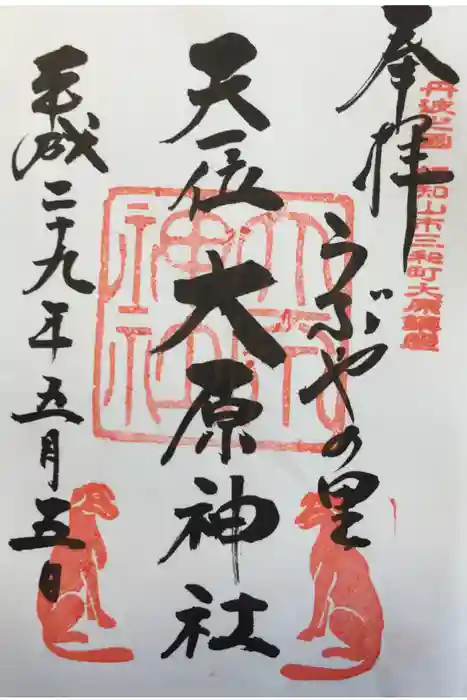 奉拝
丹波之国 福知山市三和町大原鎮座
うぶやの里
天一位 大原神社
大原神社
平成二十九年五月五日